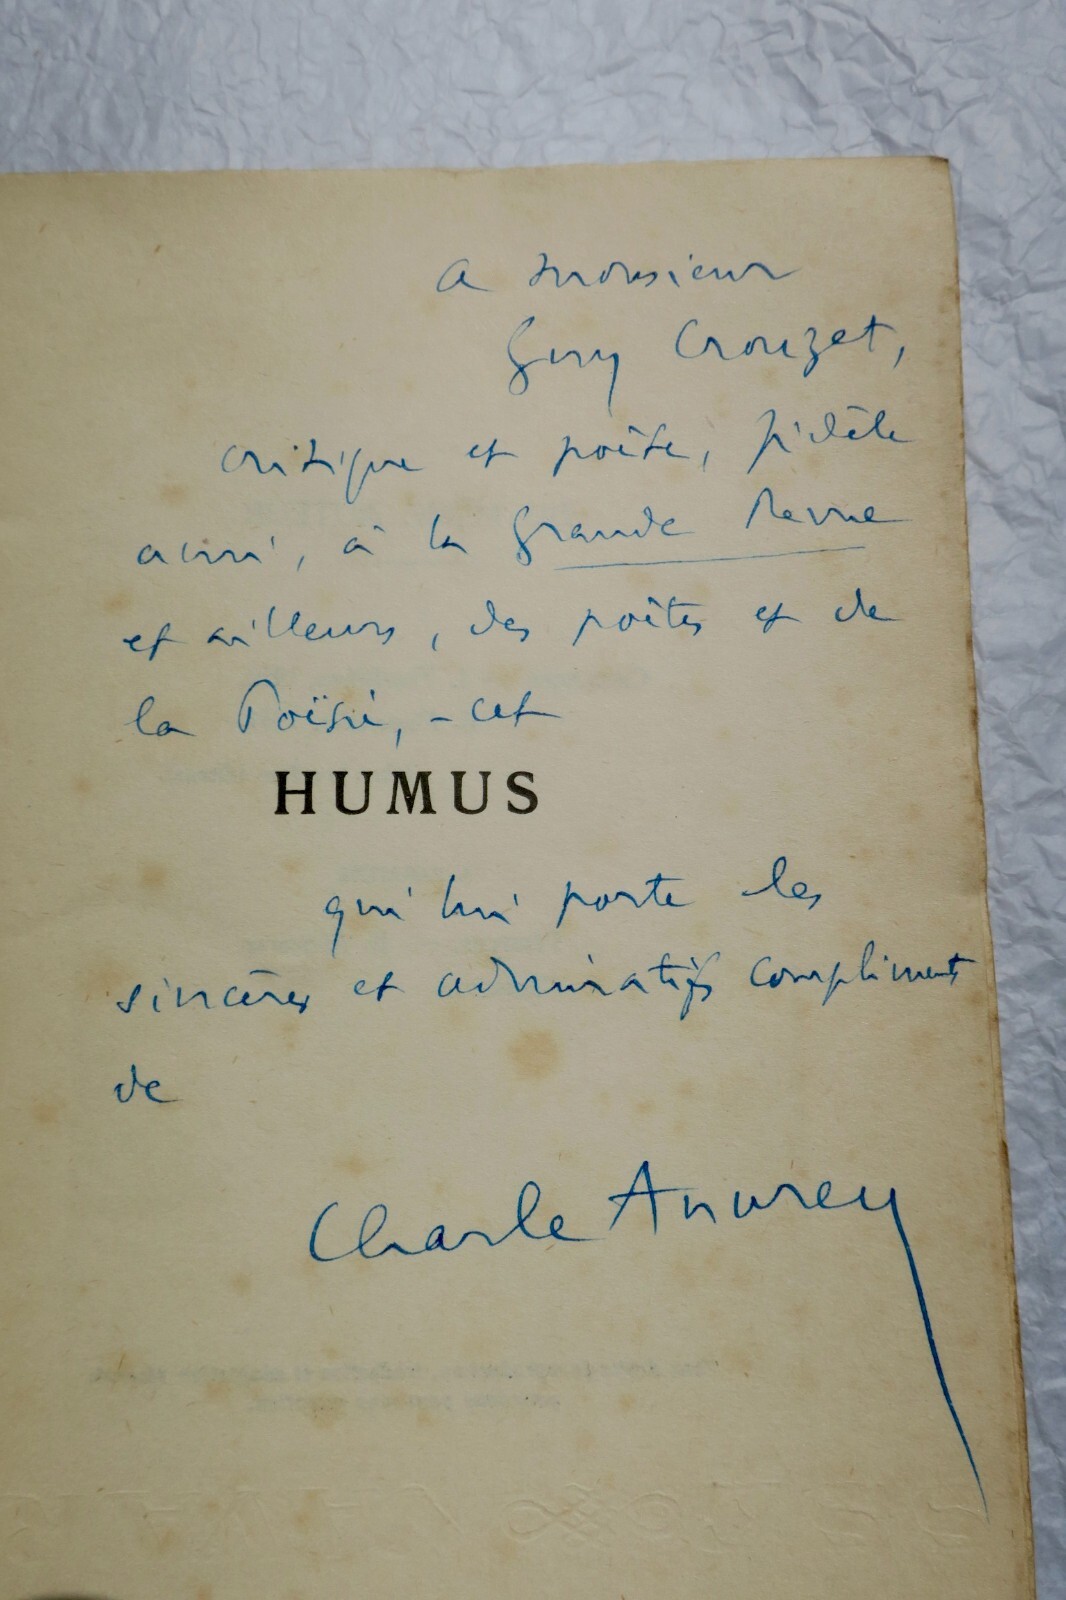 a monsieur
Guy Crouzet,
critique et poète, fidèle
ami, à la Grande Revue
et ailleurs, des poètes et de
la Poësie, - cet
HUMUS
qui lui porte les
sincères et admiratifs compliments
de
Charle